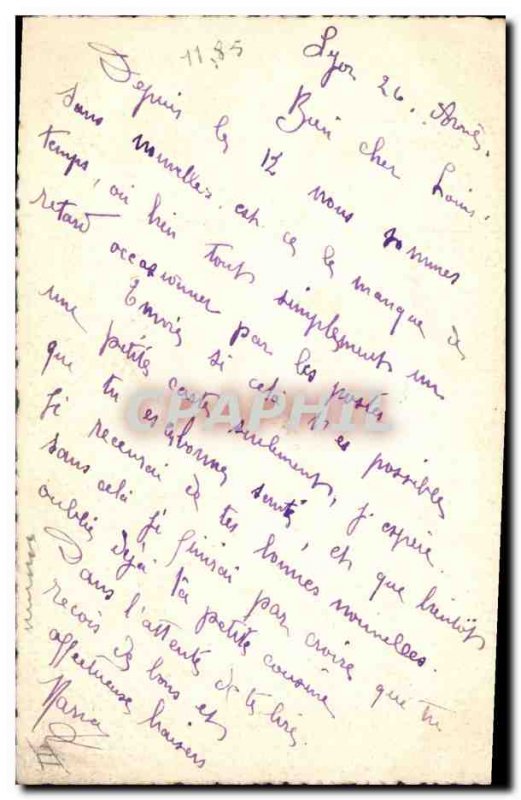 11.85
Lyon 26.
Bien cher Louis,
Depuis le 12 nous sommes
sans nouvelles, est ce le manque de
temps, ou bien tout simplement un
retard occasionner par les postes
Envoie si cela t'es possible
une petite carte seulement, j'espère
que tu es bonne santé, et que bientôt
je recevrai de tes bonnes nouvelles.
sans cela je finirai par croire que tu
oublie déjà ta petite cousine
Dans l'attente de te lire.
reçois de bons et
affectueux baisers
CPAPHIL